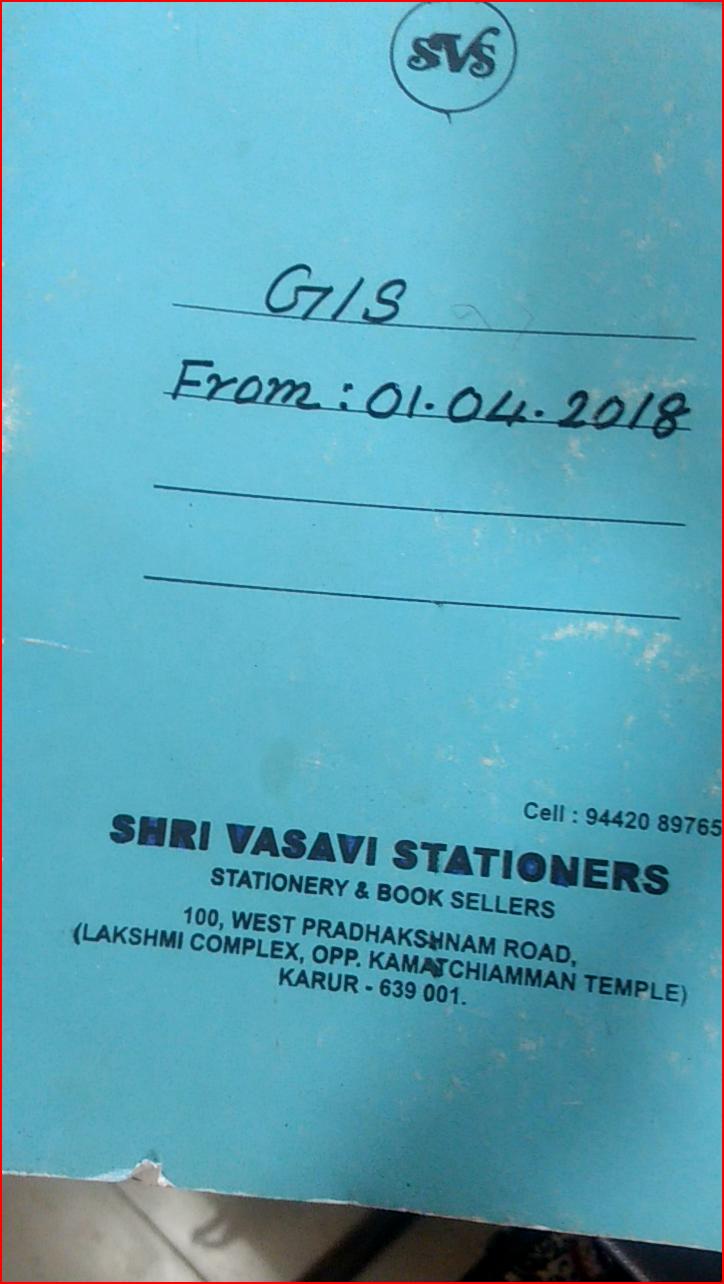 SVS
GIS
From : 01.04.2018
Cell : 94420 89765
SHRI VASAVI STATIONERS
STATIONERY & BOOK SELLERS
100, WEST PRADHAKSHNAM ROAD,
(LAKSHMI COMPLEX, OPP. KAMATCHIAMMAN TEMPLE)
KARUR - 639 001.